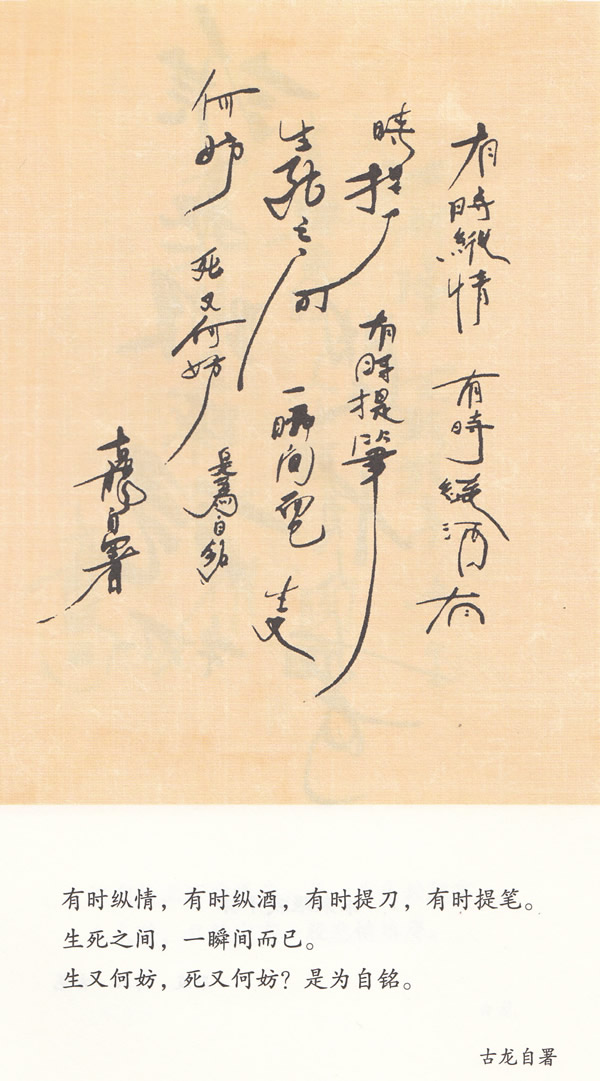 有時縱情 有時縱酒 有
時提刀 有時提筆
生死之间 一瞬间而已 生又
何妨 死又何妨 是為自銘
古龍自署
有时纵情，有时纵酒，有时提刀，有时提笔。
生死之间，一瞬间而已。
生又何妨，死又何妨？是为自铭。
古龙自署